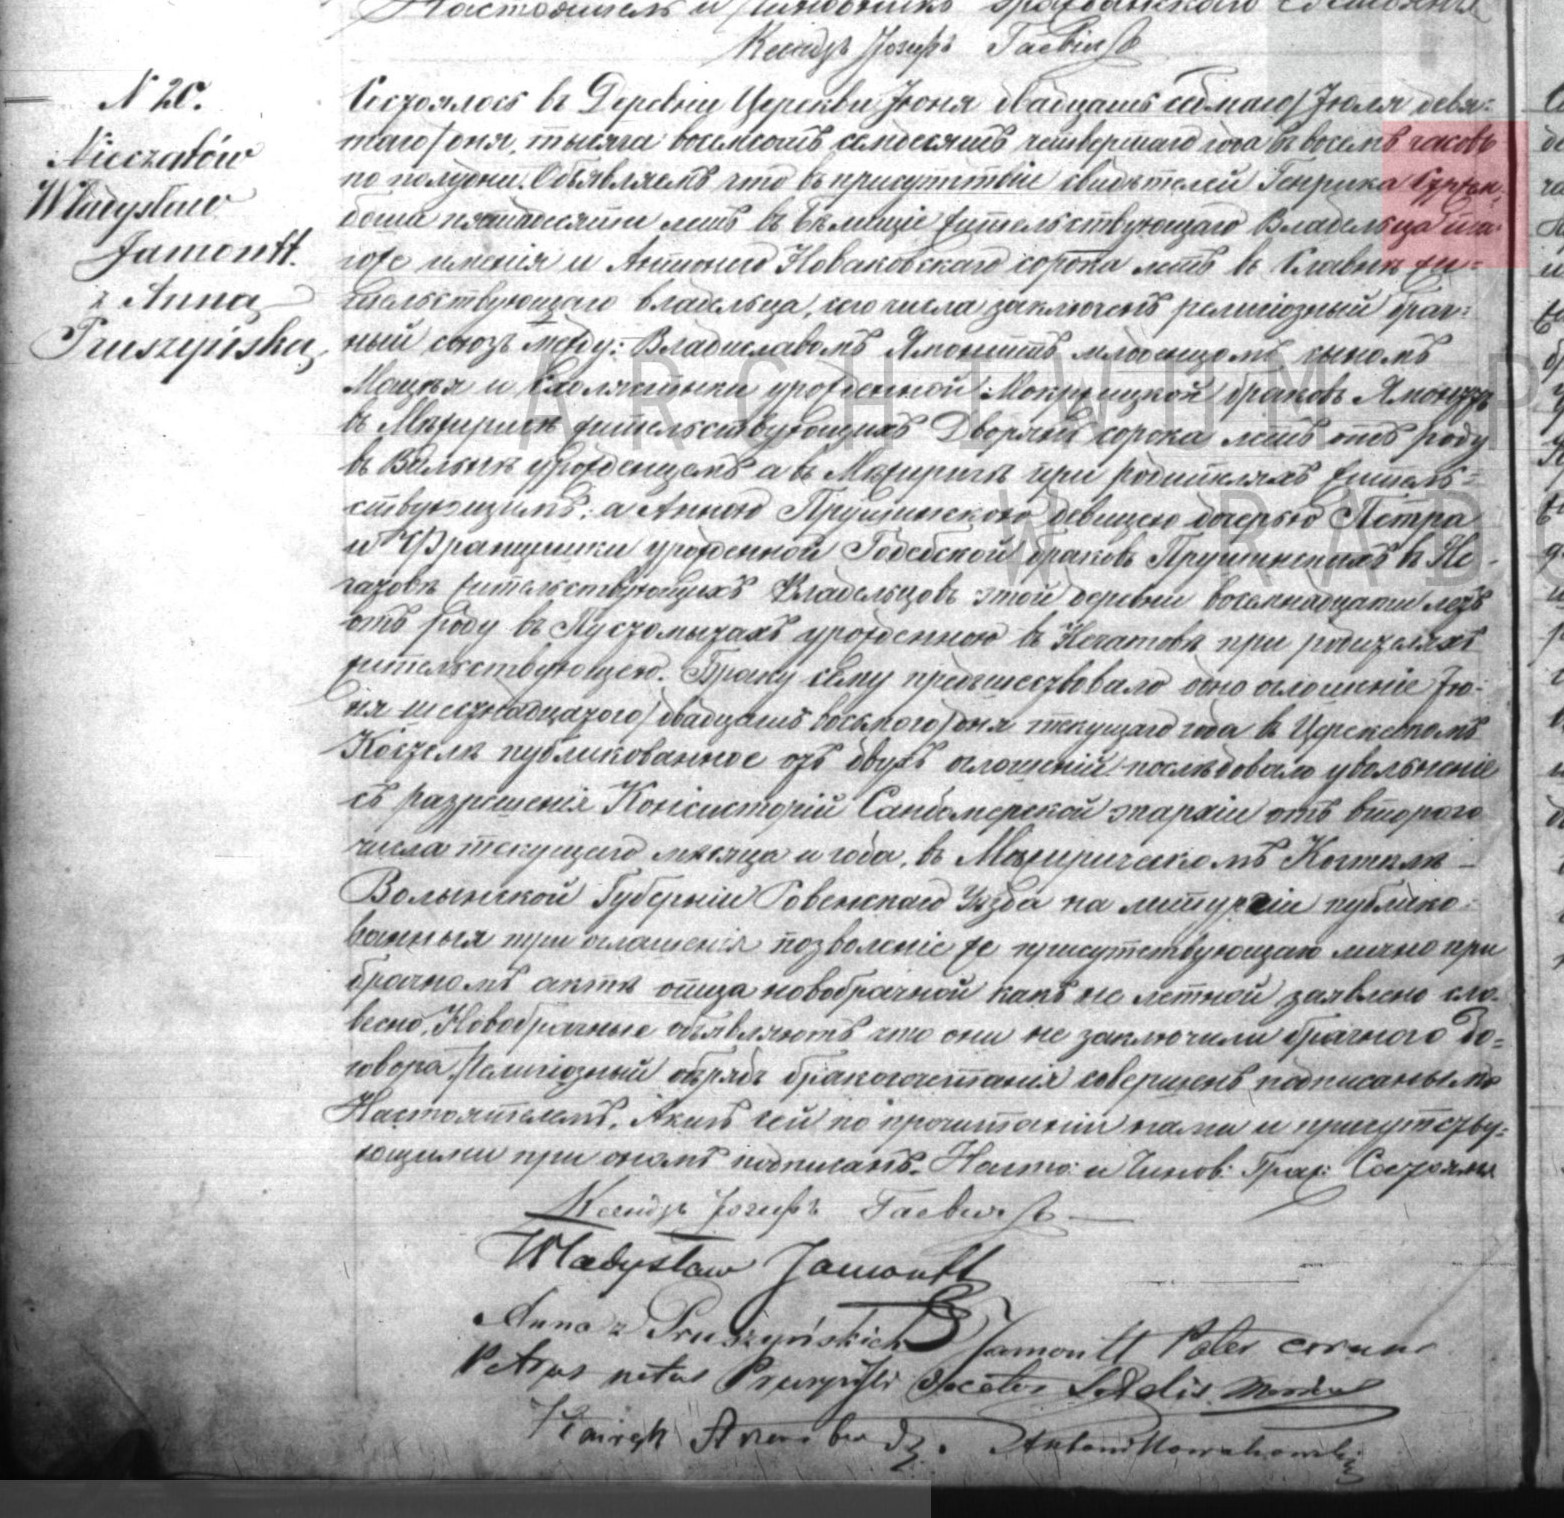 Настоятель и Чиновникъ Гражданскаго Состоянія
Ксендзъ Іозефъ
N 20.
Nieczatów
Władysław
Jamontt.
z Anną
Pruszyńską
Состоялось въ Деревни Церекви Іюня двадцать седмаго/Іюля девя-
таго/дня, тысяча восемьсотъ семдесятъ четвертаго года въ восемь часовъ
по полудни. Объявляемъ что въ присутствіи свидѣтелей Генрика
пятидесяти лѣтъ въ жительствующаго Владельца
гоже имѣнія и Антонего Новаковскаго сорока лѣтъ въ Славнѣ жи-
тельствующаго владельца, сего числа заключенъ религіозный брач-
ный союзъ между: Владиславомъ Ямонттъ младенцомъ сыномъ
Мацѣя и урожденной браковъ Ямонттъ
въ Межиричѣ жительствующихъ Дворянъ сорока лѣтъ отъ роду
въ урожденцемъ а въ Межиричѣ при родителяхъ житель-
ствующимъ; а Анною Прушинскою девицею дочерью Петра
и Францишки урожденной Годебской браковъ Прушинскихъ въ Не-
чатовѣ жительствующихъ Владельцовъ этой деревни восемнадцати летъ
отъ роду въ Пустомытахъ урожденною въ Нечатовѣ при родителяхъ
жительствующею. Браку сему предшествовало одно оглошеніе Iю-
ня шестнадцатого/двадцать восьмого/дня текущаго года въ Церекскомъ
Костелѣ публикованное отъ двухъ оглошеній последовало увольненіе
съ разрешенія Консисторіи Сандомерской эпархіи отъ второго
числа текущаго месяца и года, въ Межиричскомъ Костелѣ
Волынской Губерніи Ровенскаго Уезда на литургіи публико-
ванныя три оглашенія позволеніе же присутствующаго лично при
брачномъ актѣ отца новобрачной какъ не летной заявлено сло-
весно. Новобрачные объявляютъ что они не заключили брачного До-
говора. Религіозный обрядъ бракосочетанія совершенъ подписанымъ
Настоятелемъ. Актъ сей по прочитаніи нами и присутству-
ющими при ономъ подписанъ. Насто: и Чинов: Граж: Состояня
Ксендзъ Іозефъ
Władysław Jamontt
Anna z Pruszyńskich Jamontt Pater
Petrus natus Pruszyński
Antoni Nowakowski
ARCHIWUM P
W RADO